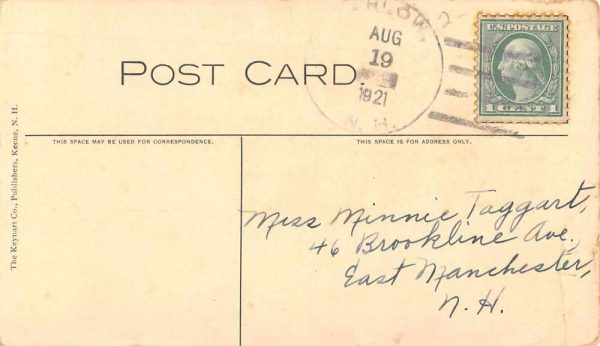 POST CARD.
AUG
19
1921
N. H.
U.S. POSTAGE
1 CENT 1
THIS SPACE MAY BE USED FOR CORRESPONDENCE.
THIS SPACE IS FOR ADDRESS ONLY.
The Keynart Co., Publishers, Keene, N. H.
Miss Minnie Taggart,
46 Brookline Ave,
East Manchester,
N. H.